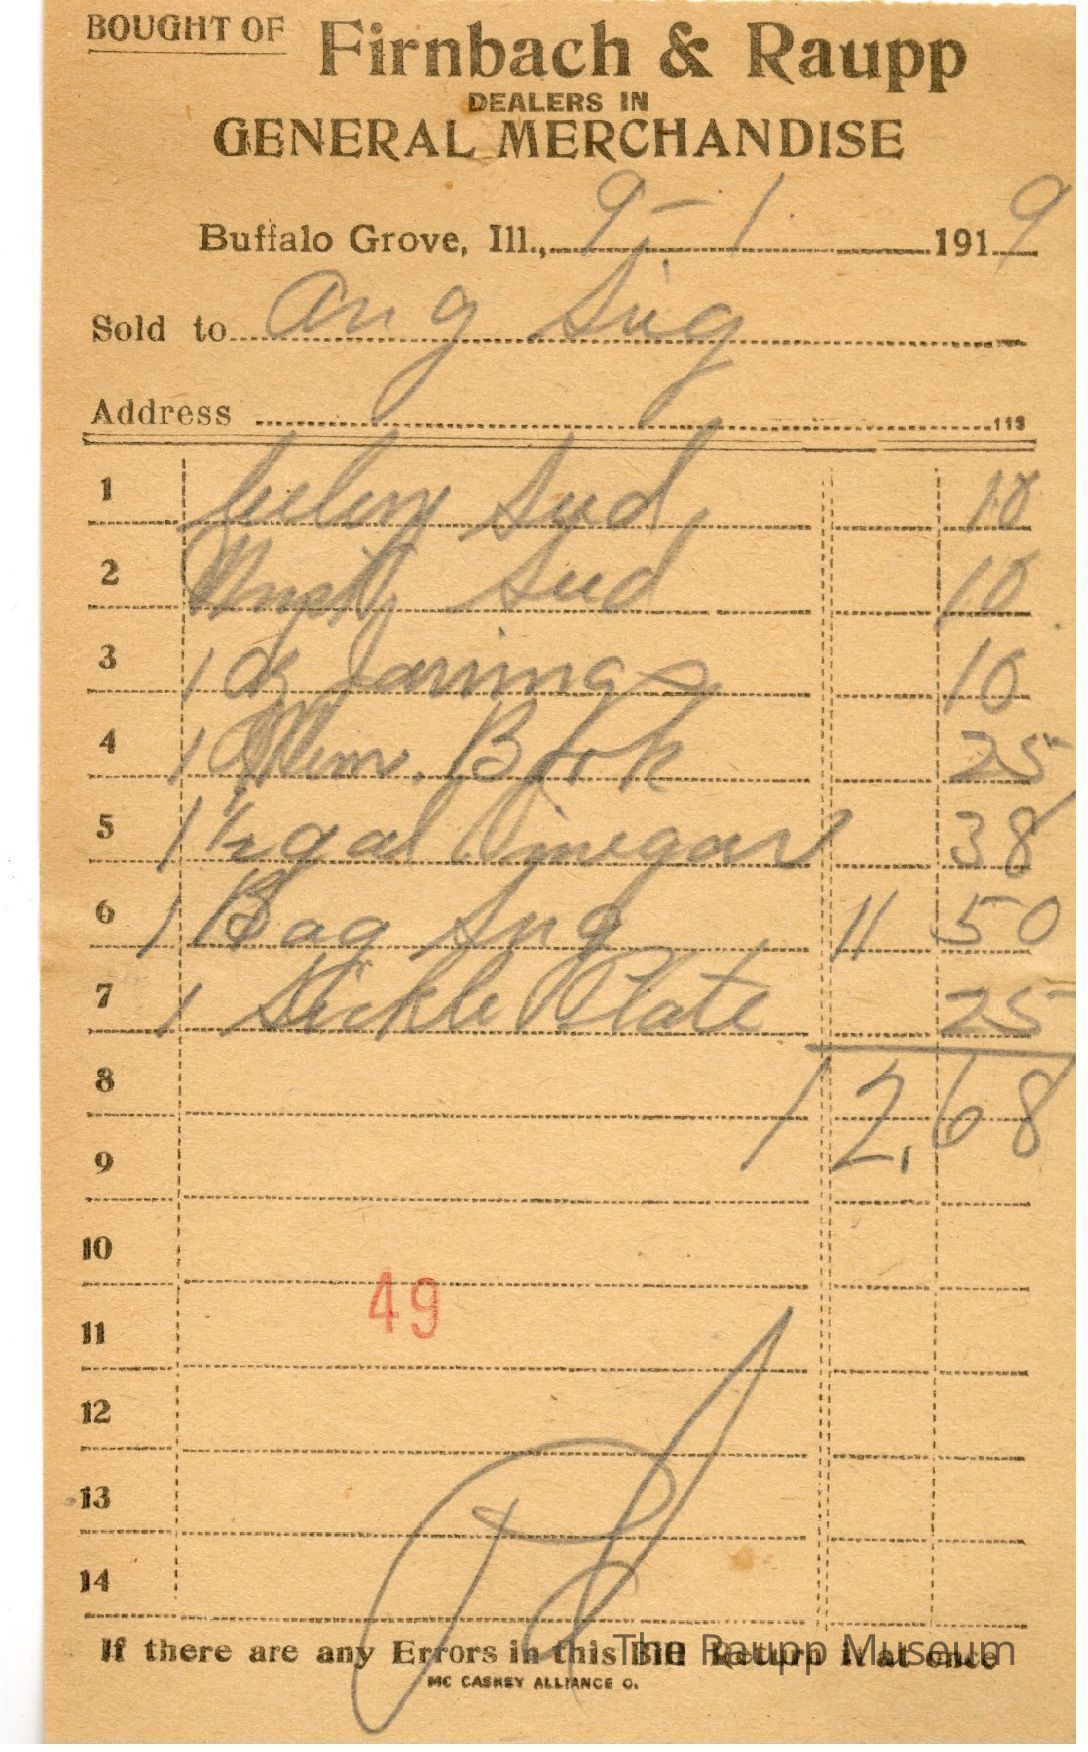 BOUGHT OF Firnbach & Raupp
DEALERS IN
GENERAL MERCHANDISE
Buffalo Grove, Ill., 9-1 1919
Sold to Aug Sieg
Address 113
1 Celery Seed 10
2 Must. Seed 10
3 1 Dz Jar rings 10
4 1 Mem. Book 25
5 1 1/2 gal Vinegar 38
6 1 Bag Sug 11 50
7 1 Sickle Plate 25
8 12.68
9
10
49
11
12
13
14
If there are any Errors in this Bill Return it at once
The Raupp Museum
MC CASKEY ALLIANCE O.